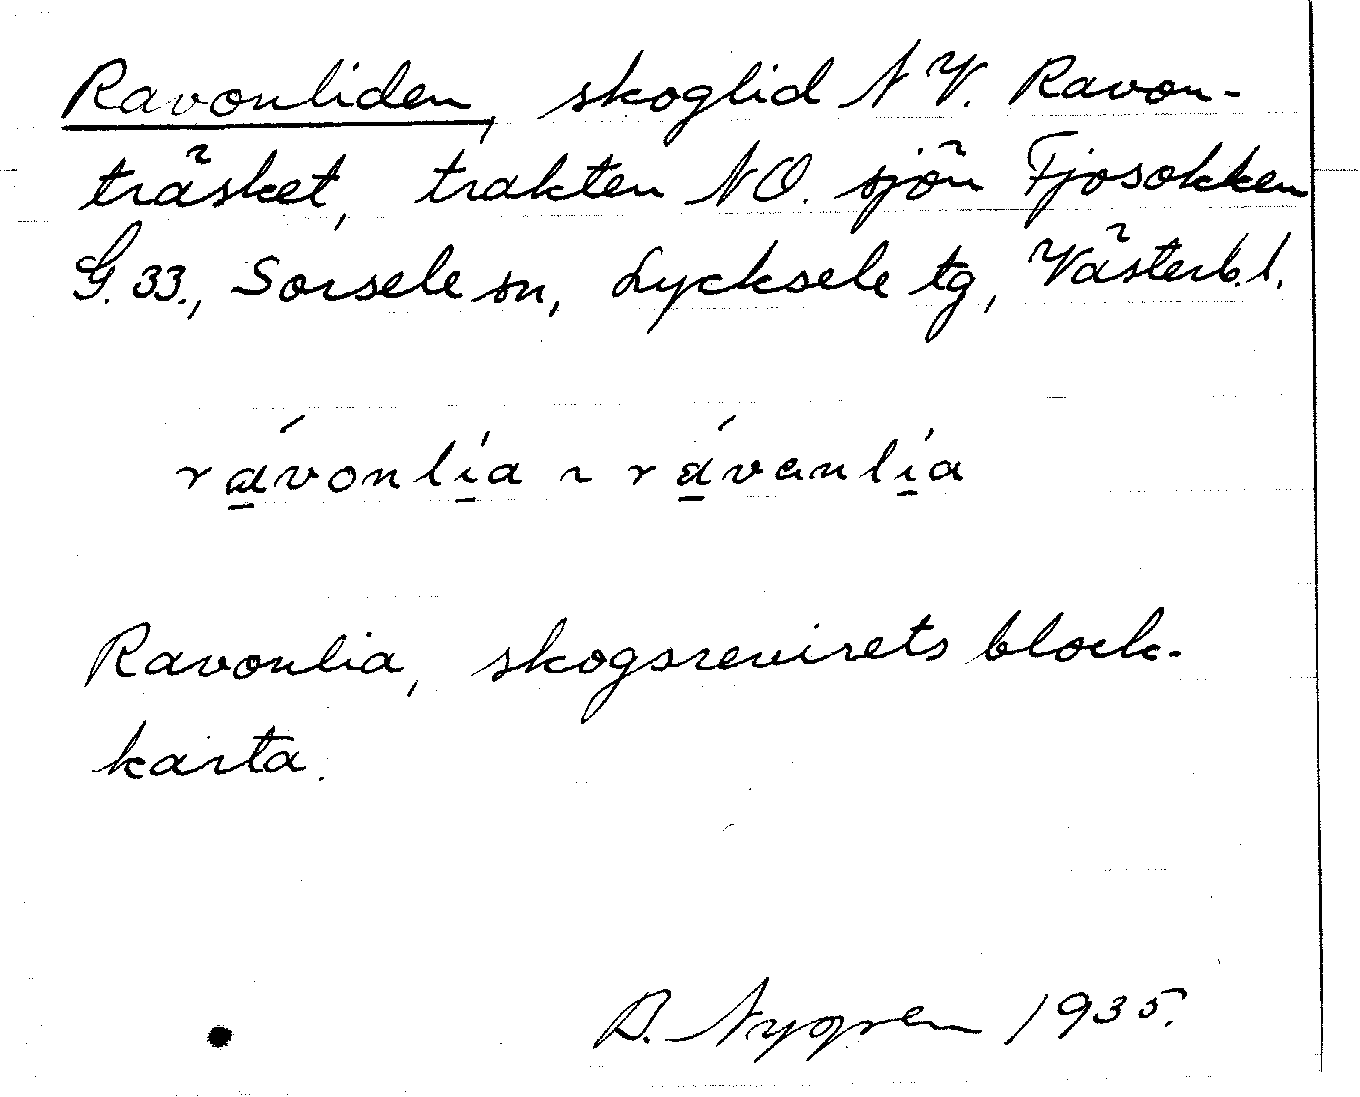 Ravonliden, skoglid NV. Ravon-
träsket, trakten NO. sjön Fjosokken
G. 33., Sorsele sn, Lycksele tg, Västerb. l.
rávonlía ~ rávanlía
Ravonlia, skogsrevirets block-
karta.
B. Nygren 1935.